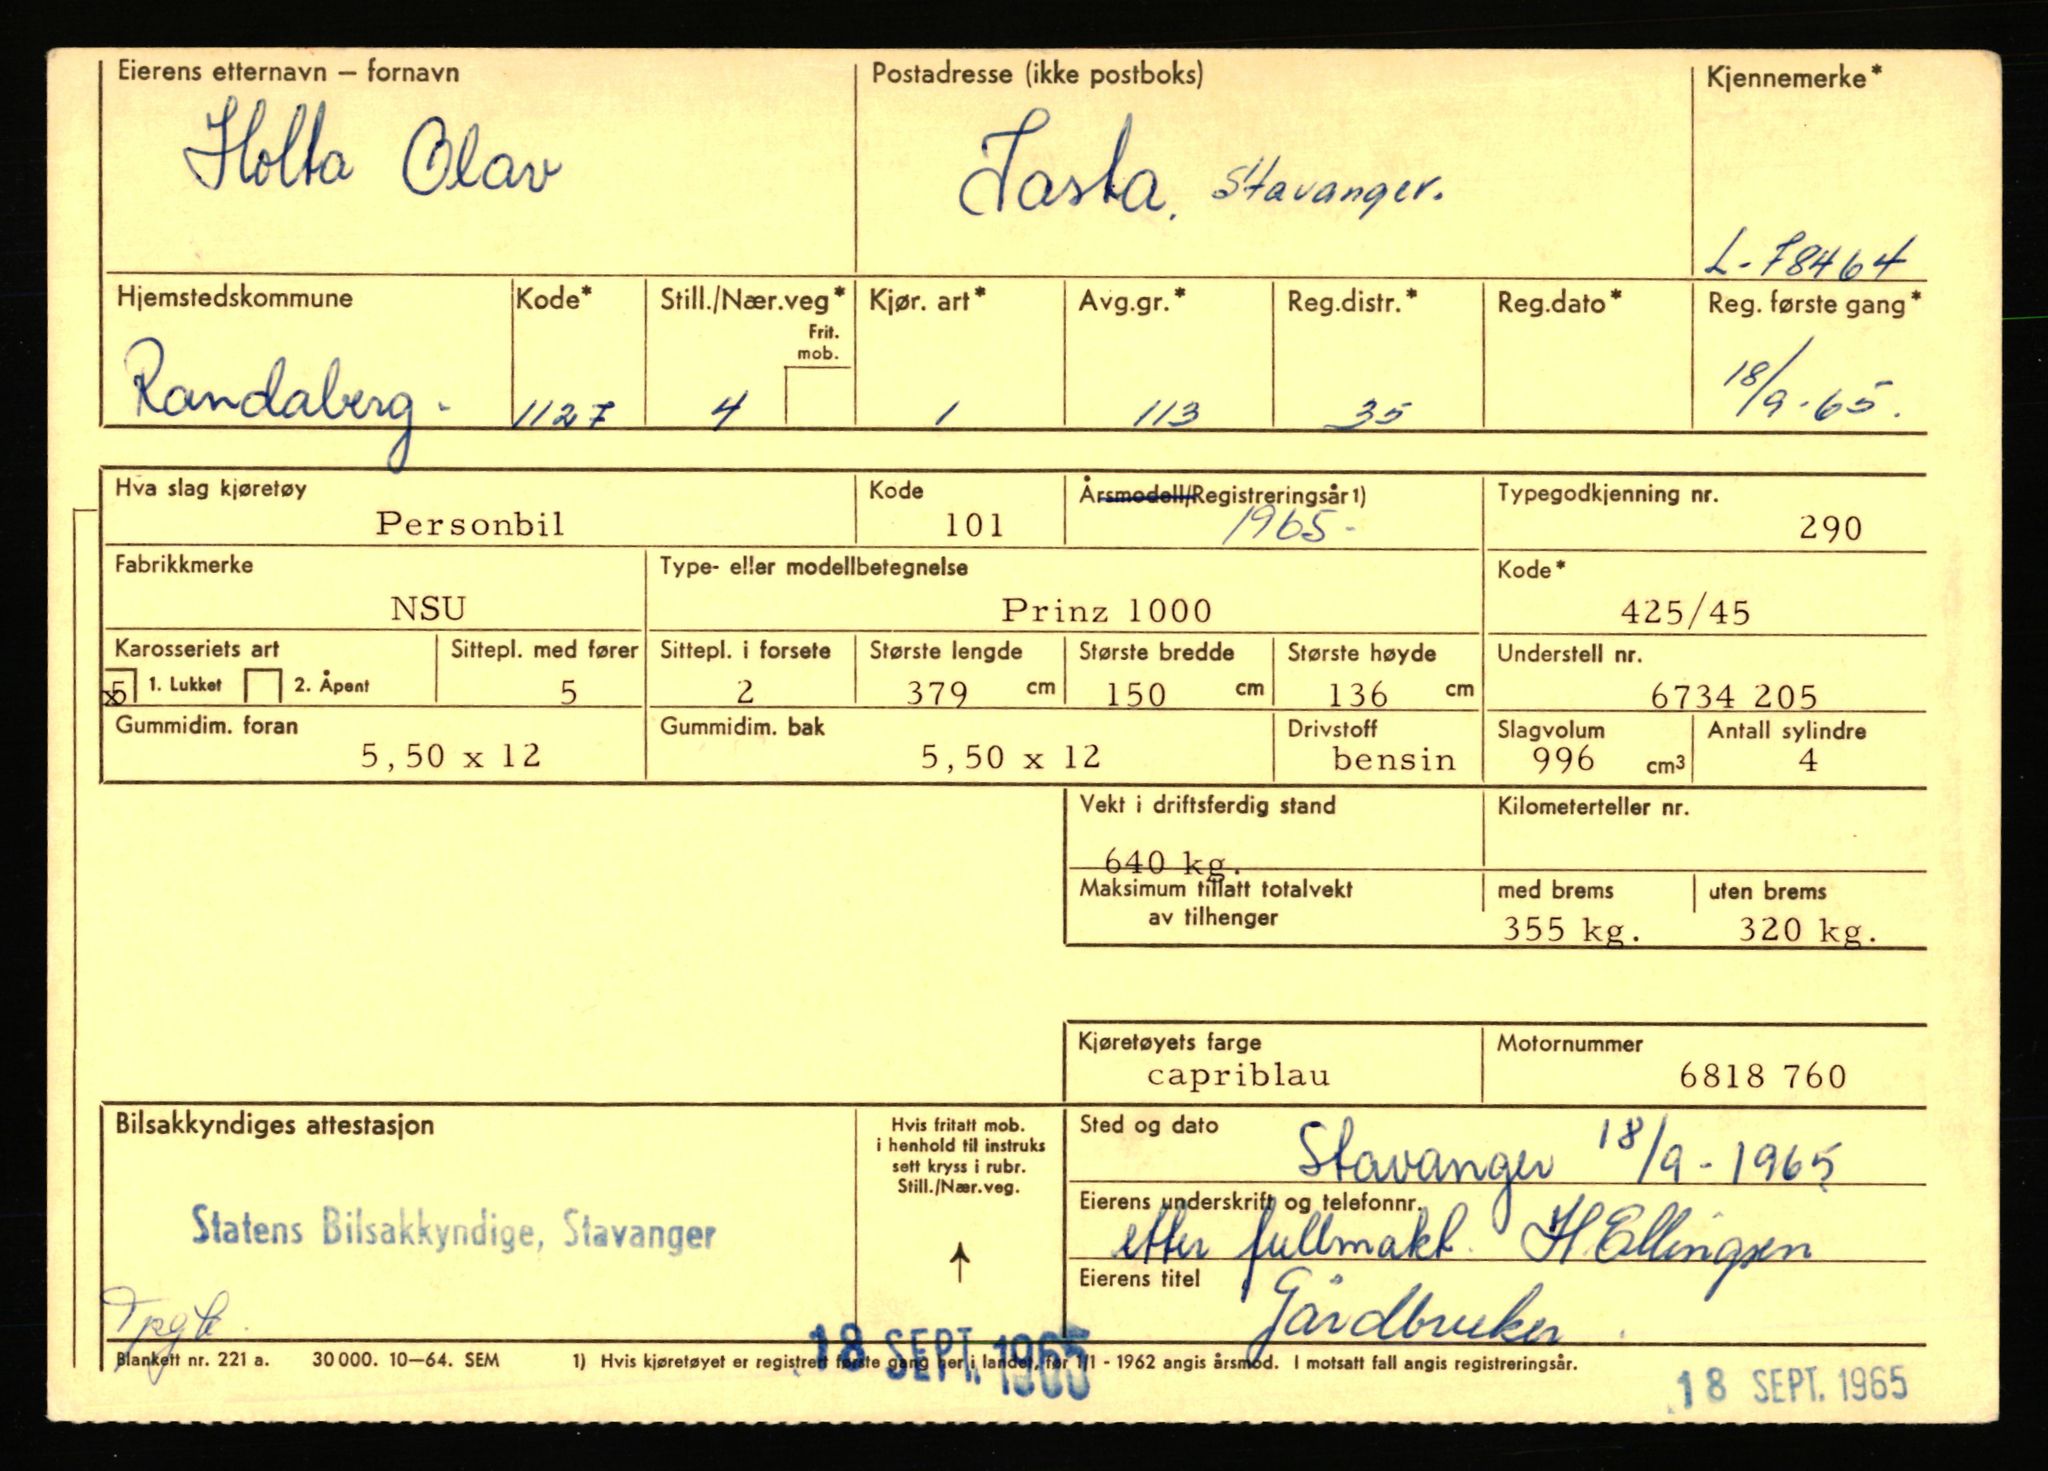 Eierens etternavn — fornavn Postadresse (ikke postboks) Kjennemerke*
Holta Olav Tasta, Stavanger.
L-78464
Hjemstedskommune Kode* Still./Nær.veg* Kjør. art* Avg.gr.* Reg.distr.* Reg.dato* Reg. første gang*
Frit.
mob.
Randaberg. 1127 4 1 113 35 18/9-65.
Hva slag kjøretøy Kode Årsmodell/Registreringsår 1) Typegodkjenning nr.
Personbil 101 1965- 290
Fabrikkmerke Type- eller modellbetegnelse Kode*
NSU Prinz 1000 425/45
Karosseriets art Sittepl. med fører Sittepl. i forsete Største lengde Største bredde Største høyde Understell nr.
x5 1. Lukket 2. Åpent 5 2 379 cm 150 cm 136 cm 6734 205
Gummidim. foran Gummidim. bak Drivstoff Slagvolum Antall sylindre
5,50 x 12 5,50 x 12 bensin 996 cm3 4
Vekt i driftsferdig stand Kilometerteller nr.
640 kg.
Maksimum tillatt totalvekt med brems uten brems
av tilhenger 355 kg. 320 kg.
Kjøretøyets farge Motornummer
capriblau 6818 760
Bilsakkyndiges attestasjon Hvis fritatt mob. Sted og dato
i henhold til instruks
sett kryss i rubr.
Still./Nær.veg.
Stavanger 18/9-1965
Eierens underskrift og telefonnr.
Statens Bilsakkyndige, Stavanger etter fullmakt. H Ellingsen
Eierens titel
Gårdbruker
18 SEPT. 1965
Blankett nr. 221 a. 30 000. 10—64. SEM 1) Hvis kjøretøyet er registrert første gang her i landet, før 1/1 - 1962 angis årsmod. I motsatt fall angis registreringsår.
18 SEPT. 1965